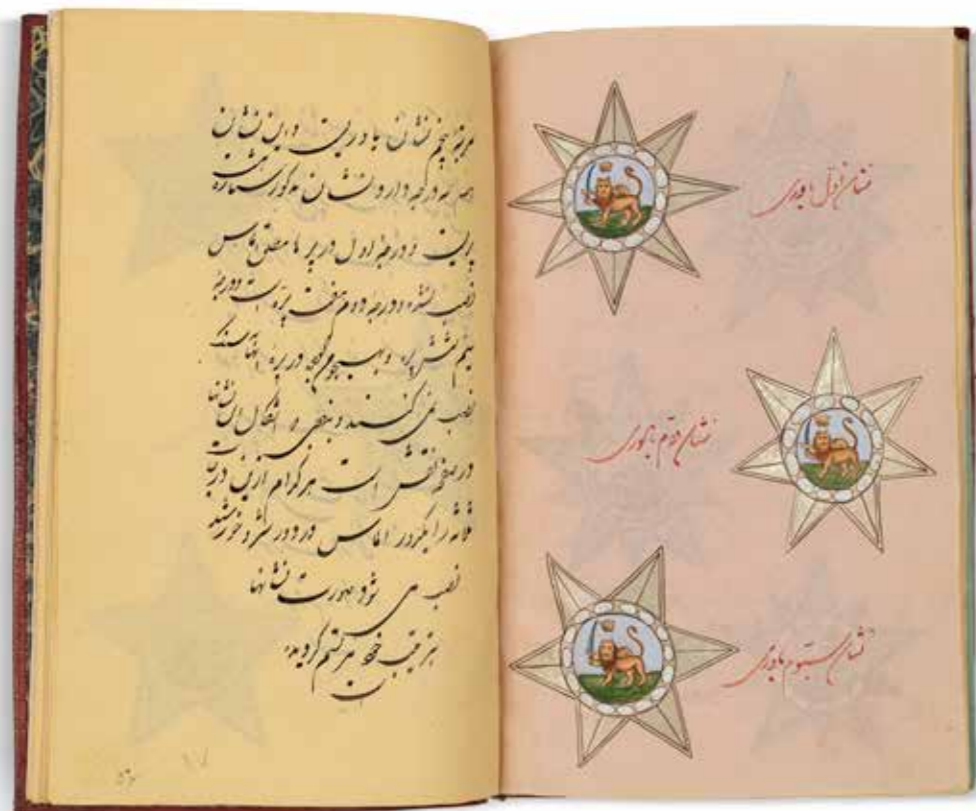 مرتبه پنجم نشان یاوریست و این نشان
هم سه درجه دارد و نشان مذکور ستاره هشت
پریست و درجه اول در پرها مطلق الماس
نصب نشده و درجه دوم هفت پره است و درجه
سیم شش پره و بهیچوجه در پره آنها سنک
نصب نمی کنند و بنقصی در اشکال این نشانها
در صفحه نقش است هر کدام ازین درجات
ثلاثه را یکدور الماس در دور شیر و خورشید
نصب می شود صورت نشانها
بترتیب خود مرتسم گردیده
نشان اول یاوری
نشان دوم یاوری
نشان سیوم یاوری